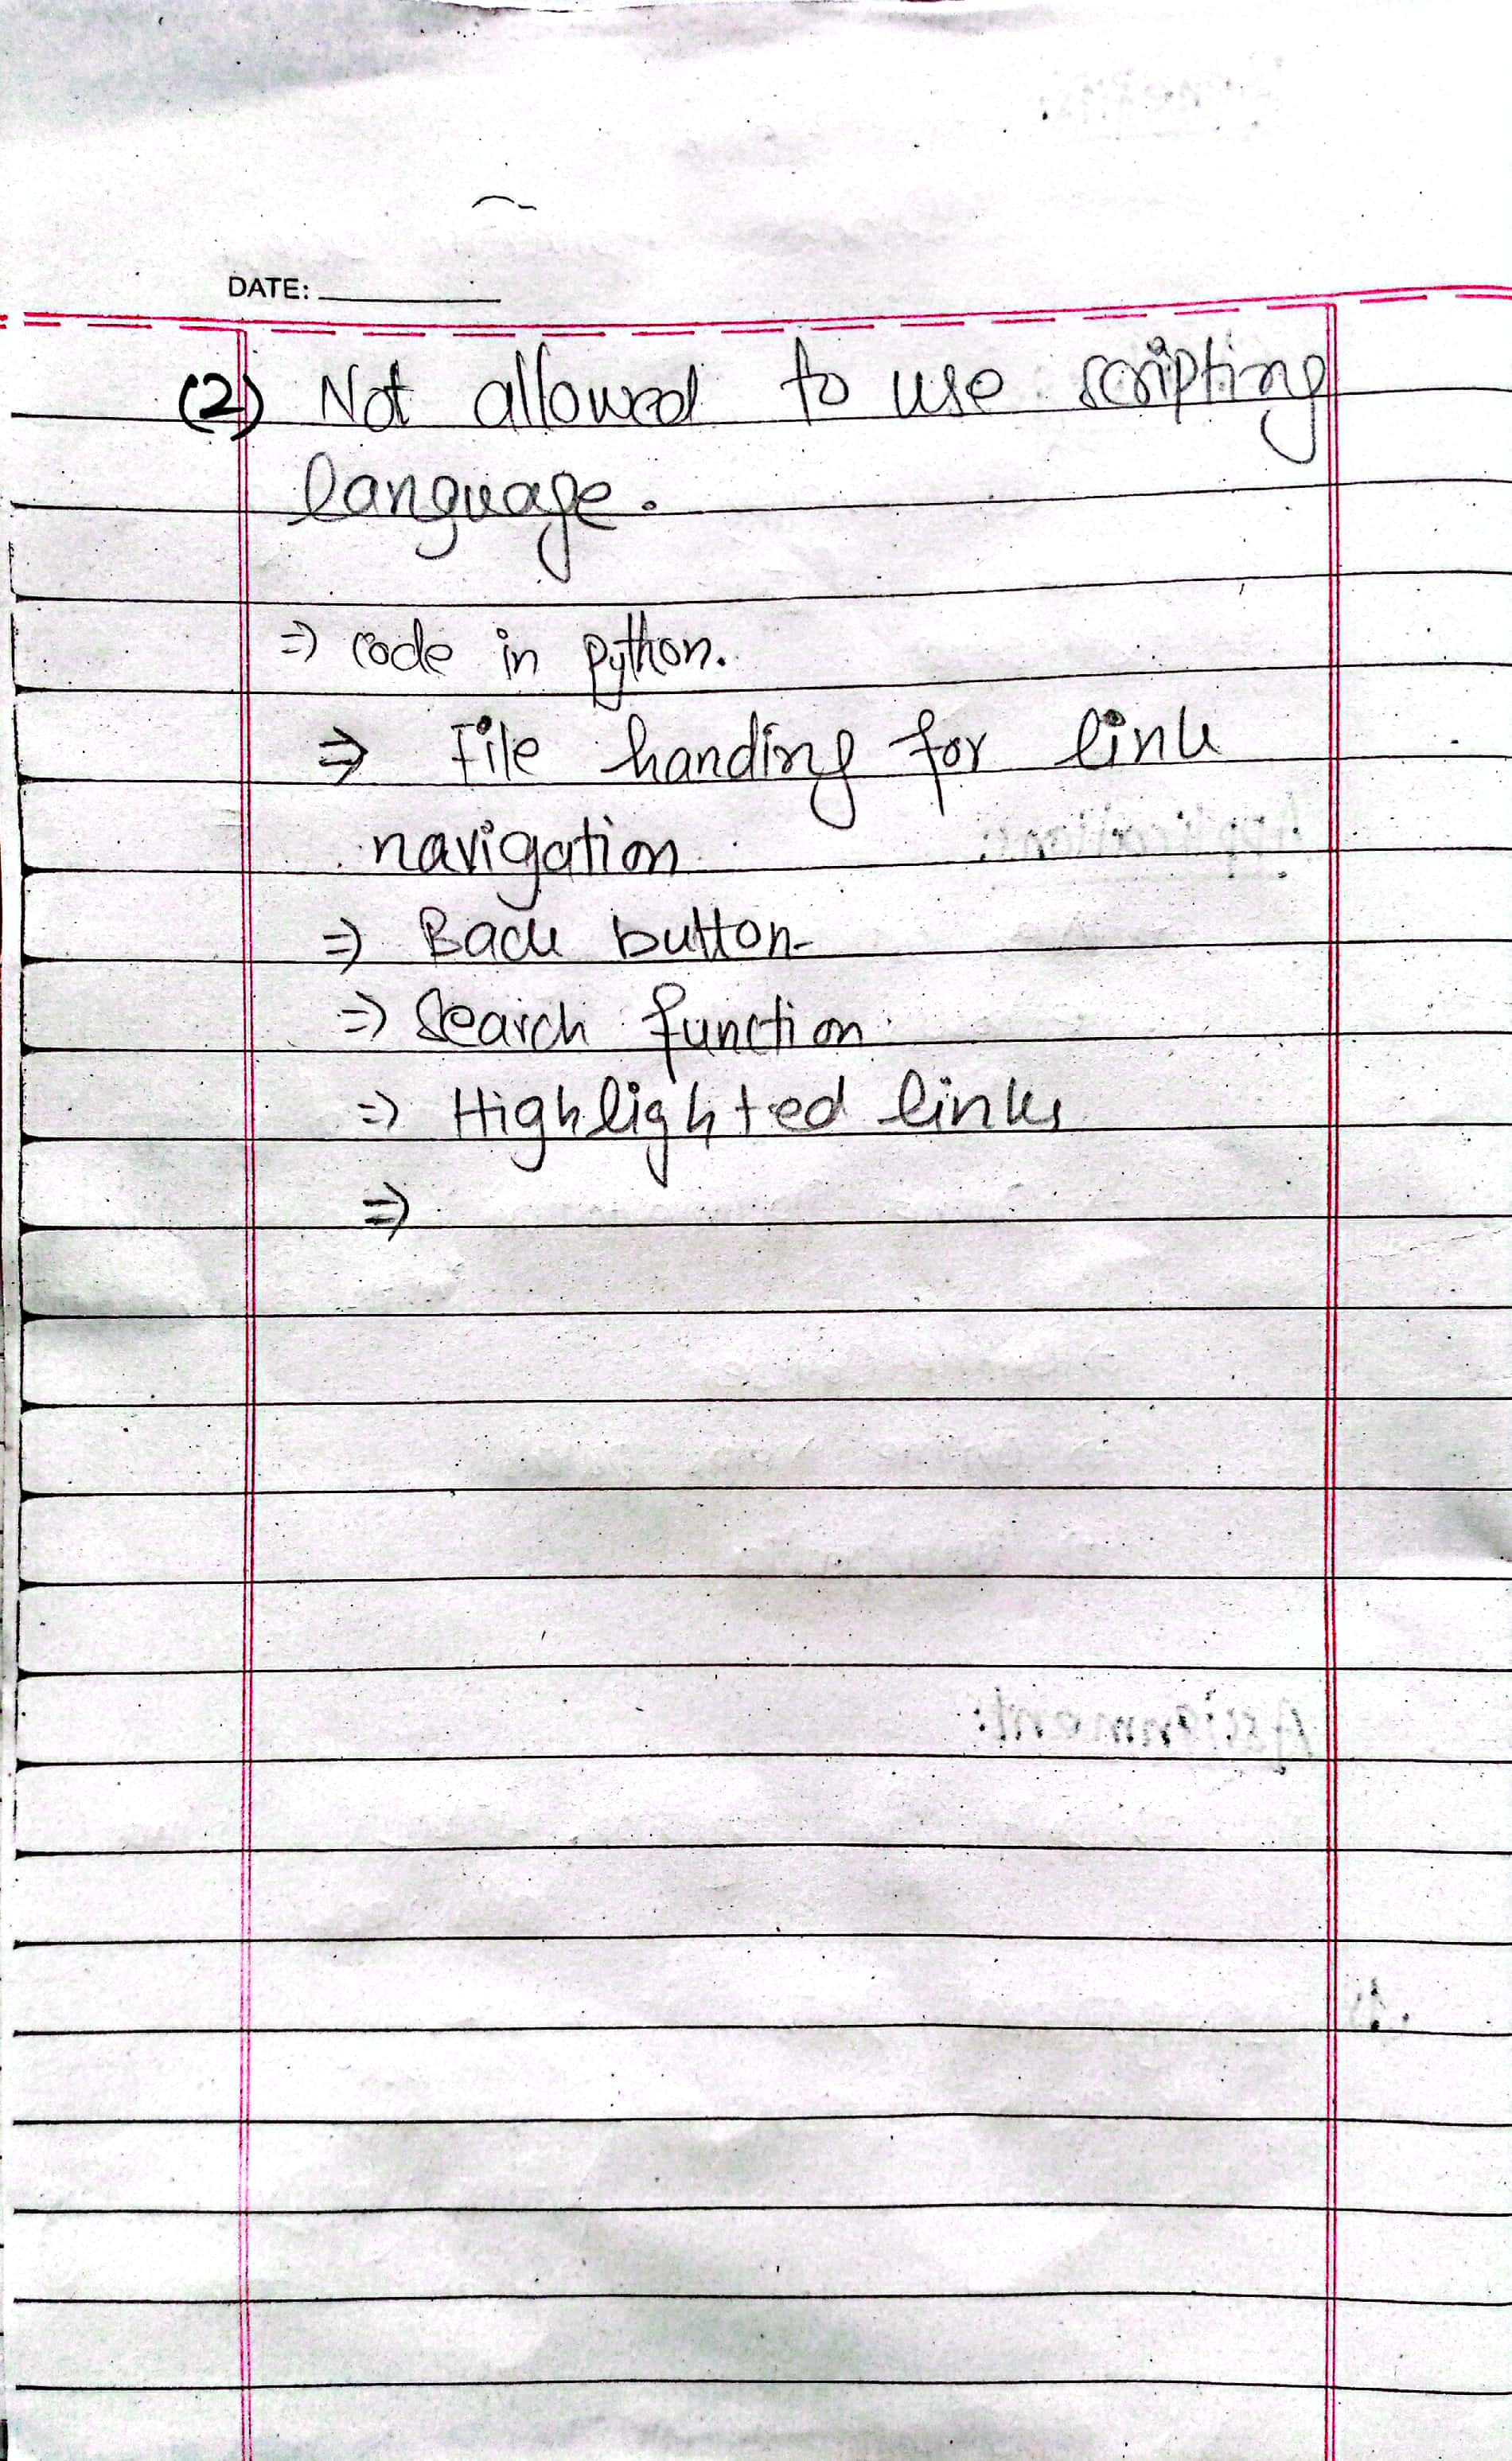 DATE:
(2) Not allowed to use scripting
language.
=> code in python.
=> File handing for link
navigation
=> Back button
=> Search function
=> Highlighted links
=>